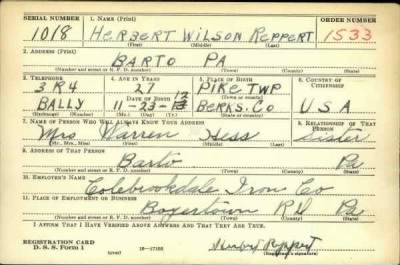 SERIAL NUMBER 1. NAME (Print) ORDER NUMBER
1018 HERBERT WILSON REPPERT 1533
(First) (Middle) (Last)
2. ADDRESS (Print)
BARTO PA
(Number and street or R. F. D. number) (Town) (County) (State)
3. TELEPHONE 4. AGE IN YEARS 5. PLACE OF BIRTH 6. COUNTRY OF CITIZENSHIP
3R4 27 PIKE TWP
DATE OF BIRTH (Town or county)
BALLY 11-23-12 BERKS. CO USA
(Mo.) (Day) (Yr.) (State or country)
7. NAME OF PERSON WHO WILL ALWAYS KNOW YOUR ADDRESS 8. RELATIONSHIP OF THAT PERSON
Mrs Warren Hess Sister
(Mr., Mrs., Miss) (First) (Middle) (Last)
9. ADDRESS OF THAT PERSON
Barto Pa
(Number and street or R. F. D. number) (Town) (County) (State)
10. EMPLOYER'S NAME
Colebrookdale Iron Co
11. PLACE OF EMPLOYMENT OR BUSINESS
Boyertown RD Pa
(Number and street or R. F. D. number) (Town) (County) (State)
I AFFIRM THAT I HAVE VERIFIED ABOVE ANSWERS AND THAT THEY ARE TRUE.
REGISTRATION CARD
D. S. S. Form 1 (over) 16-17105 Herbert Reppert
(Registrant's signature)